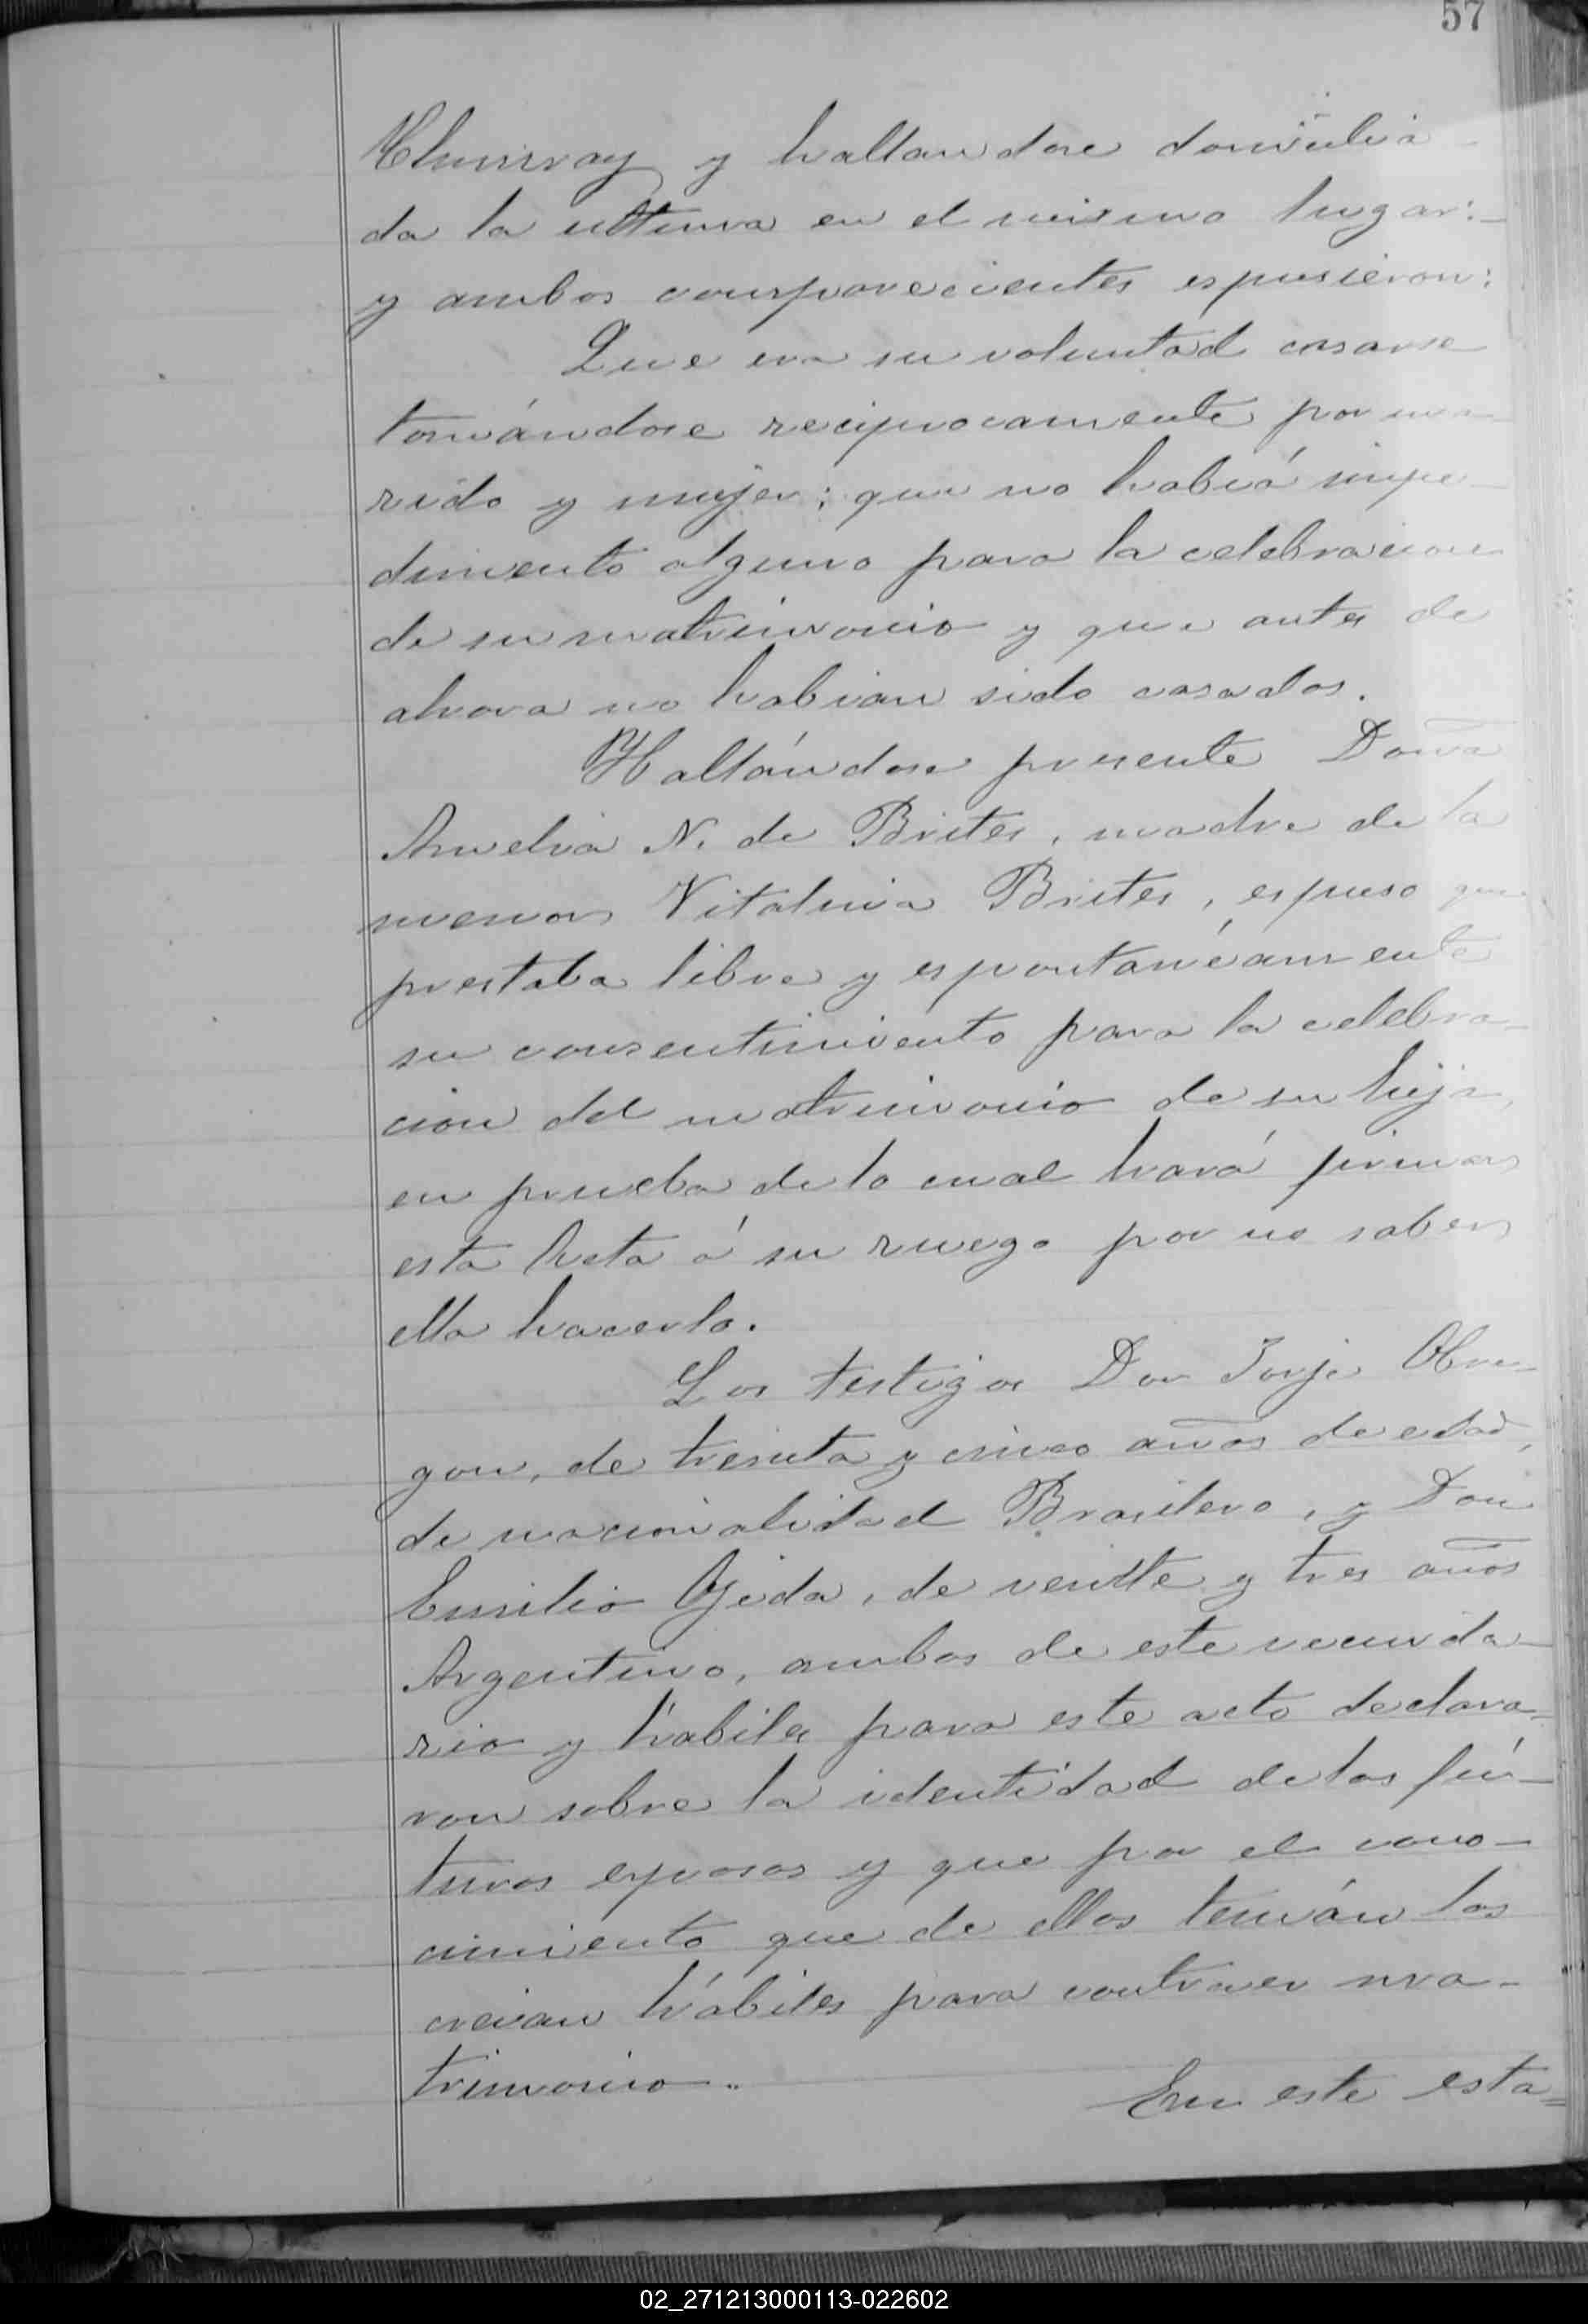 57
y hallandose domicilia-
da la ultima en el mismo lugar:-
y ambos comparecientes espusieron:
Que era su voluntad casarse
tomándose reciprocamente por ma-
rido y mujer; que no habiá impe-
dimento alguno para la celebracion
de su matrimonio y que antes de
ahora no habian sido casados.
Hallándose presente Doña
Amelia N. de Brites, madre de la
menor Vitalina Brites, espuso que
prestaba libre y espontanéamente
su consentimiento para la celebra-
cion del matrimonio de su hija,
en prueba de lo cual hará firmar
esta Acta á su ruego por no saber
ella hacerlo.
Los testigos Don Jorje Obre-
gon, de treinta y cinco años de edad,
de nacionalidad Brasilero, y Don
Emilio Ojeda, de veinte y tres años
Argentino, ambos de este vecinda-
rio y hábiles para este acto declara-
ron sobre la identidad de los fú-
turos esposos y que por el cono-
cimiento que de ellos tenián los
creian hábiles para contraer ma-
trimonio.
En este esta=
02_271213000113-022602